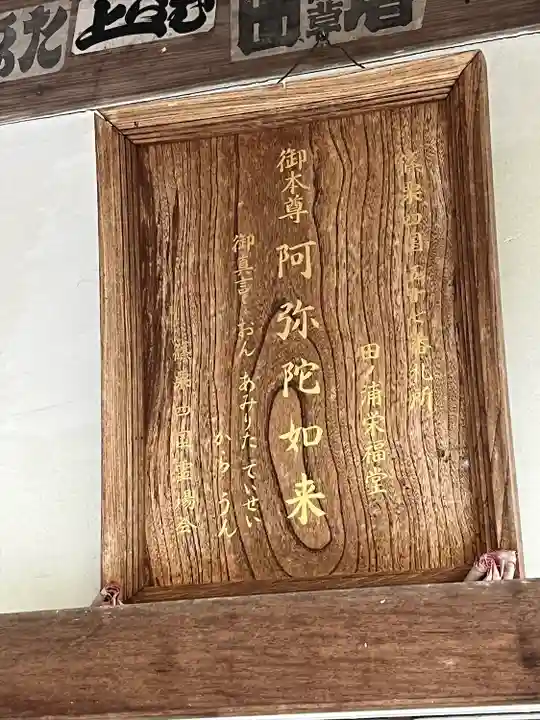 篠栗四国
番札所
田ノ浦栄福堂
御本尊 阿弥陀如来
御真言 おん あみりた ていせい
から うん
篠栗四国霊場会